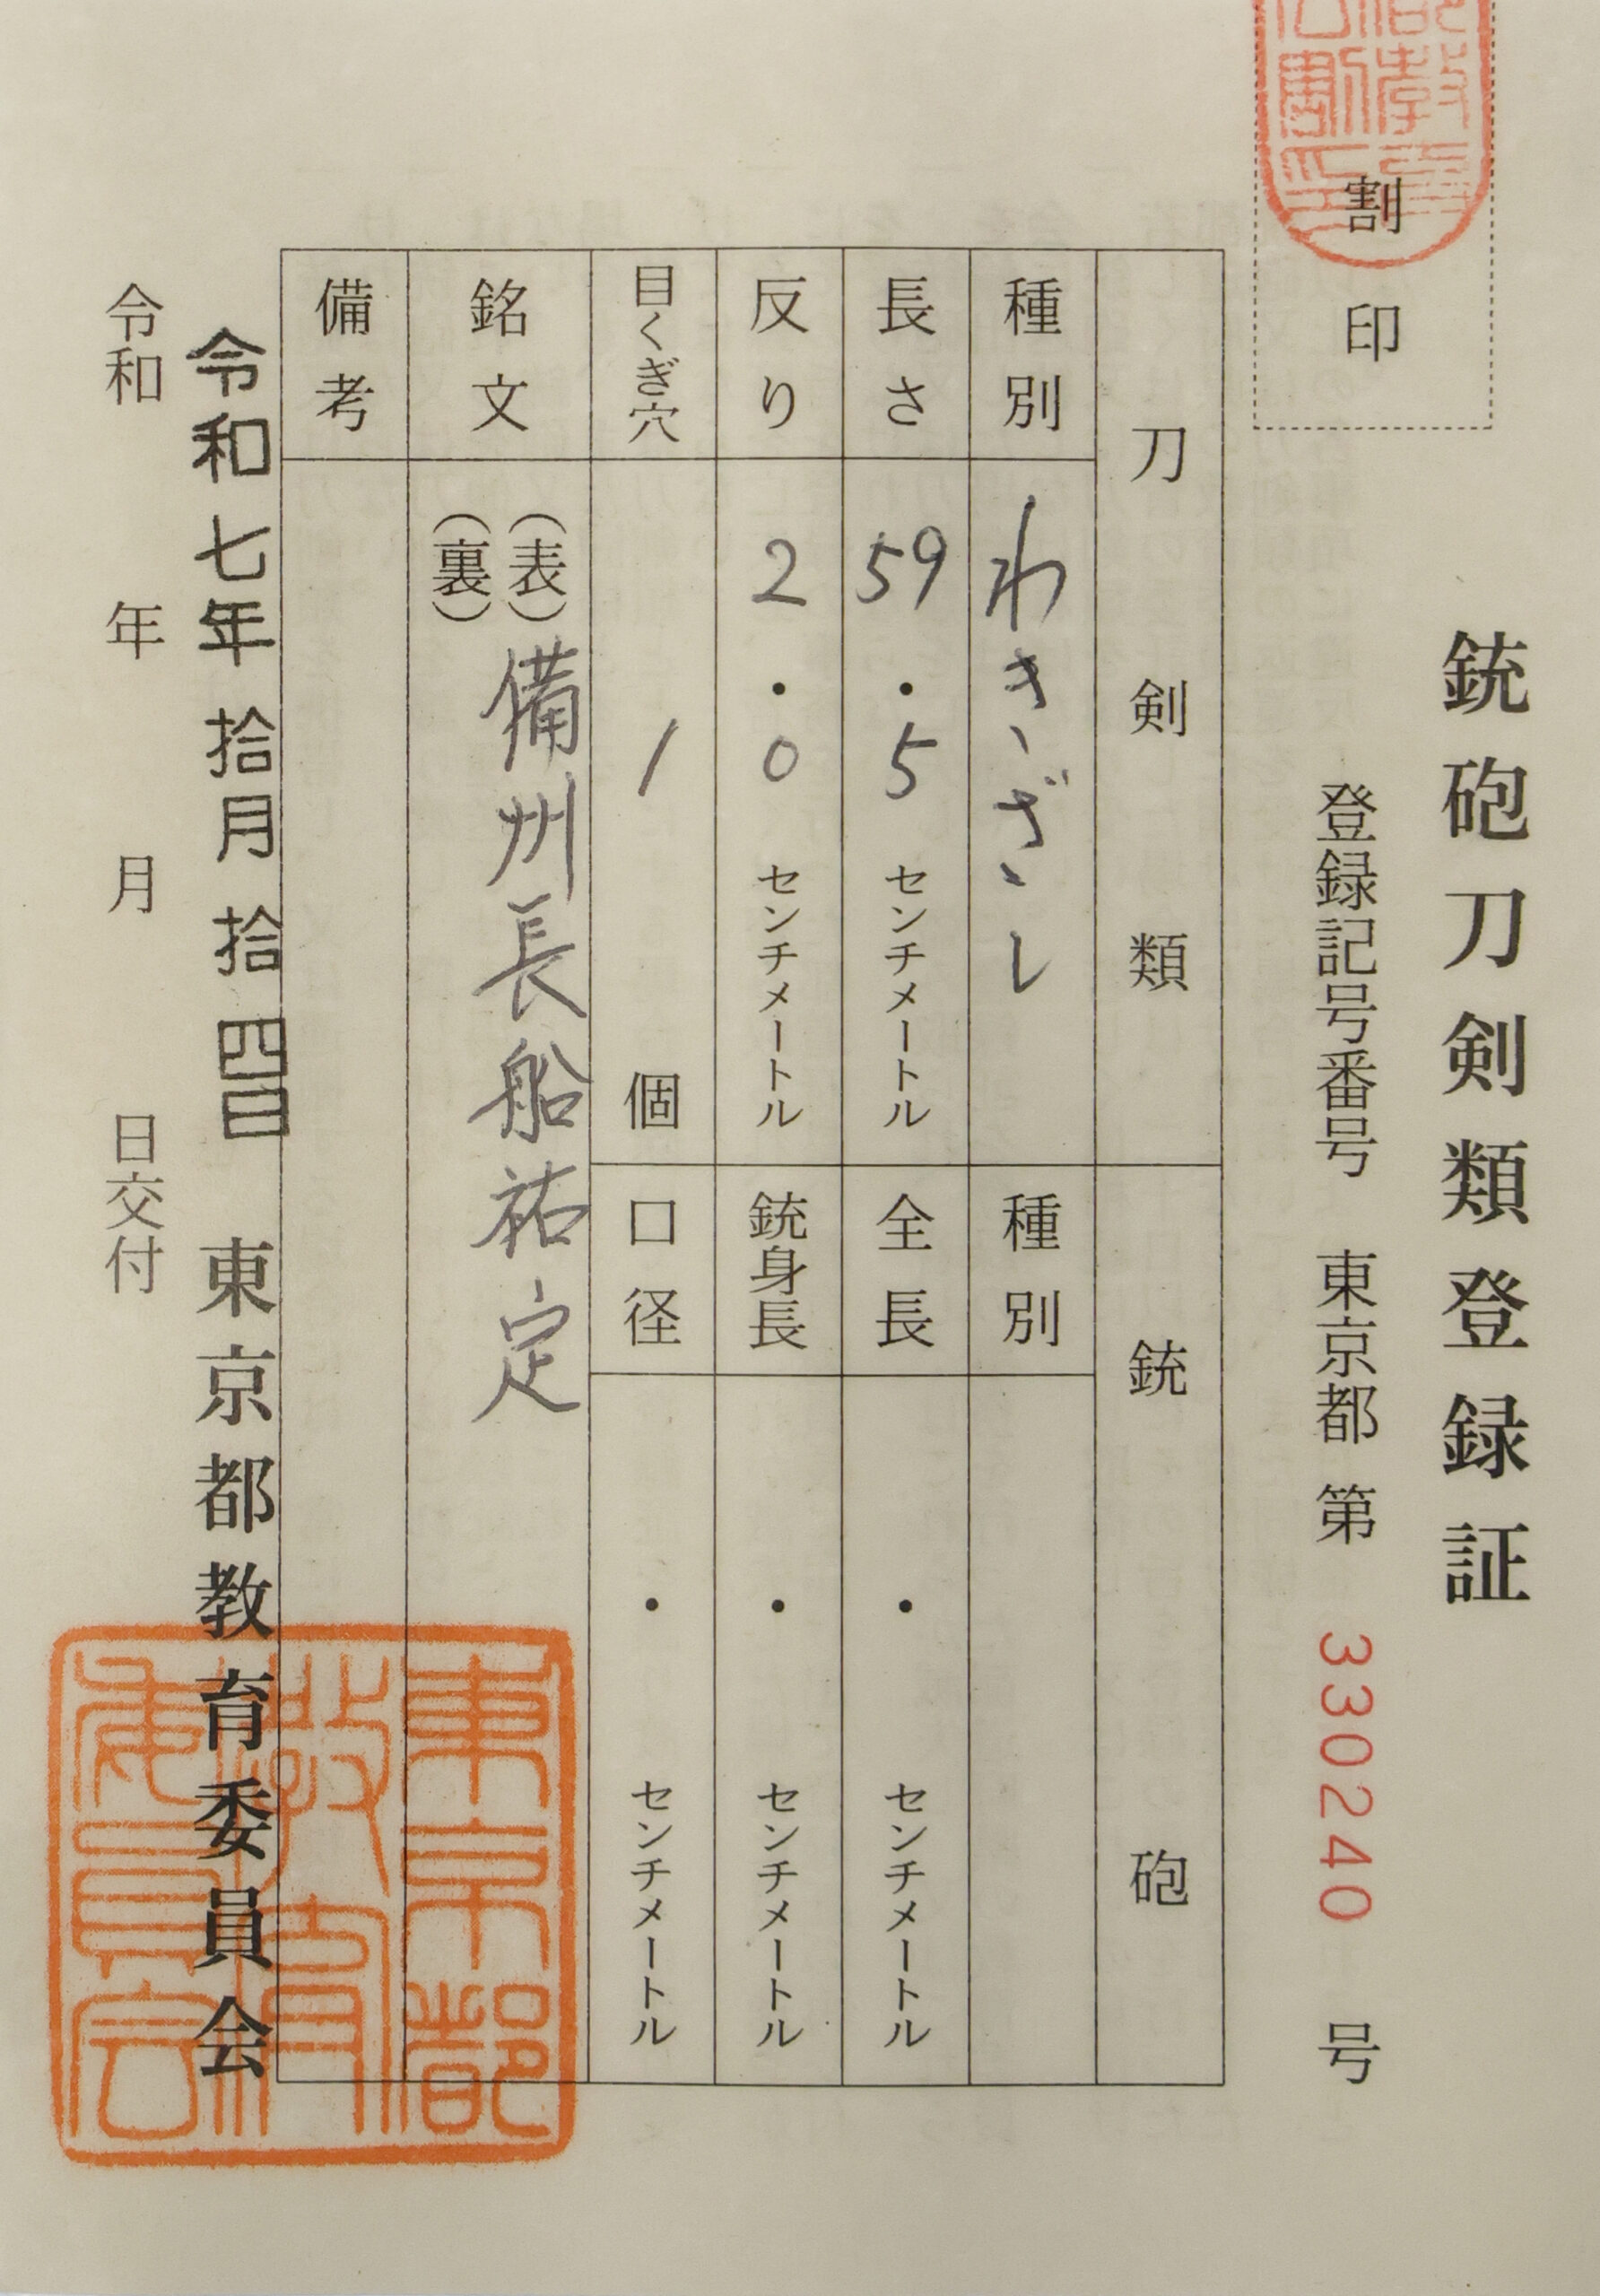 銃砲刀剣類登録証
登録記号番号 東京都 第 330240 号
割印
刀剣類
銃砲
種別 わきざし
種別
長さ 59・5 センチメートル
全長 ・ センチメートル
反り 2・0 センチメートル
銃身長 ・ センチメートル
目くぎ穴 1 個
口径 ・ センチメートル
銘文 (表) 備州長船祐定
(裏)
備考
令和七年拾月拾四日 東京都教育委員会
令和 年 月 日交付
東京都
教育
委員会